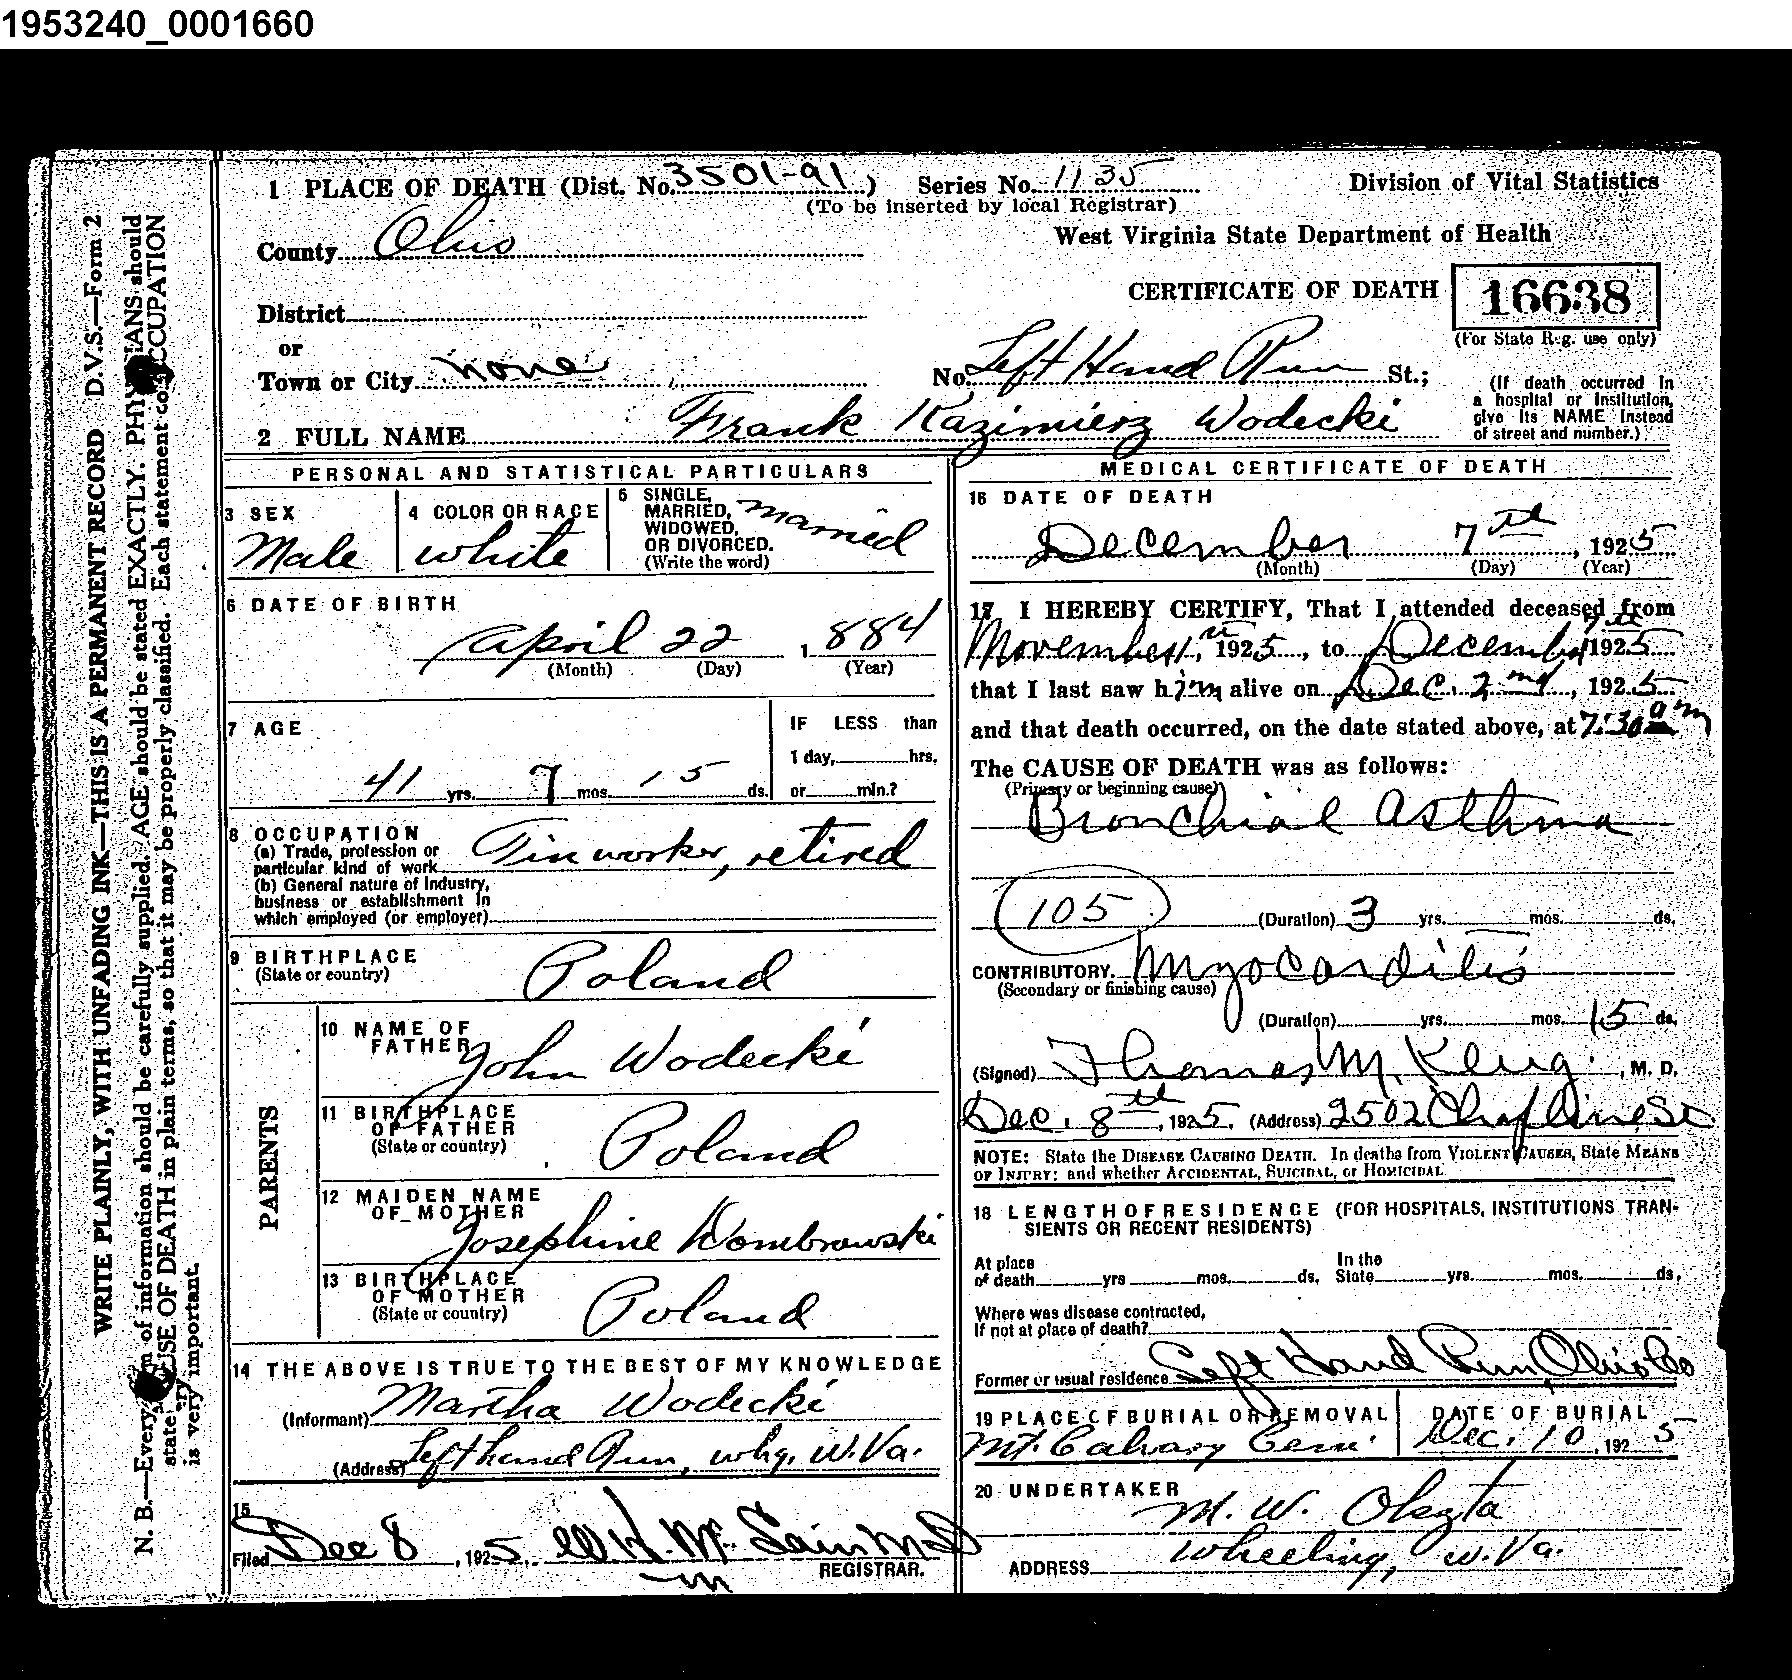 1953240_0001660
1 PLACE OF DEATH (Dist. No. 3501-91) Series No. 1135 Division of Vital Statistics
(To be inserted by local Registrar)
County Ohio West Virginia State Department of Health
CERTIFICATE OF DEATH 16638
District
(For State Reg. use only)
or
Town or City none No. Left Hand Run St.;
(If death occurred in a hospital or institution, give its NAME instead of street and number.)
2 FULL NAME Frank Kazimierz Wodecki
PERSONAL AND STATISTICAL PARTICULARS
3 SEX
Male
4 COLOR OR RACE
white
5 SINGLE, MARRIED, WIDOWED, OR DIVORCED. (Write the word)
married
6 DATE OF BIRTH
April 22, 1884
(Month) (Day) (Year)
7 AGE
41 yrs. 7 mos. 15 ds.
IF LESS than
1 day, hrs.
or min.?
8 OCCUPATION
(a) Trade, profession or
particular kind of work Tin worker, retired
(b) General nature of Industry,
business or establishment in
which employed (or employer)
9 BIRTHPLACE
(State or country) Poland
PARENTS
10 NAME OF
FATHER John Wodecki
11 BIRTHPLACE
OF FATHER
(State or country) Poland
12 MAIDEN NAME
OF MOTHER
Josephine Dombrowski
13 BIRTHPLACE
OF MOTHER
(State or country) Poland
14 THE ABOVE IS TRUE TO THE BEST OF MY KNOWLEDGE
(Informant) Martha Wodecki
(Address) Left hand Run, whg. W. Va.
15
Filed Dec 8, 1925. REGISTRAR.
MEDICAL CERTIFICATE OF DEATH
16 DATE OF DEATH
December 7th, 1925
(Month) (Day) (Year)
17 I HEREBY CERTIFY, That I attended deceased from
November 1, 1925, to December 7th 1925
that I last saw him alive on Dec. 2nd, 1925
and that death occurred, on the date stated above, at 7:30 am
The CAUSE OF DEATH was as follows:
(Primary or beginning cause)
Bronchial Asthma
105 (Duration) 3 yrs. mos. ds.
CONTRIBUTORY. Myocarditis
(Secondary or finishing cause)
(Duration) yrs. mos. 15 ds.
(Signed) Thomas M. Klug, M. D.
Dec. 8th, 1925. (Address) 2502 Chapline St
NOTE: State the DISEASE CAUSING DEATH. In deaths from VIOLENT CAUSES, State MEANS
OF INJURY; and whether ACCIDENTAL, SUICIDAL, or HOMICIDAL.
18 LENGTH OF RESIDENCE (FOR HOSPITALS, INSTITUTIONS TRAN-
SIENTS OR RECENT RESIDENTS)
At place
of death yrs mos. ds.
In the
State yrs. mos. ds.
Where was disease contracted,
If not at place of death?
Former or usual residence Left Hand Run, Ohio Co
19 PLACE OF BURIAL OR REMOVAL
Mt. Calvary Cem.
DATE OF BURIAL
Dec. 10, 1925
20 UNDERTAKER
M. W.
ADDRESS Wheeling, W. Va.
WRITE PLAINLY, WITH UNFADING INK—THIS IS A PERMANENT RECORD D.V.S.—Form 2
N. B.—Every of information should be carefully supplied. AGE should be stated EXACTLY. should
state OF DEATH in plain terms, so that it may be properly classified. Each statement
is very important.